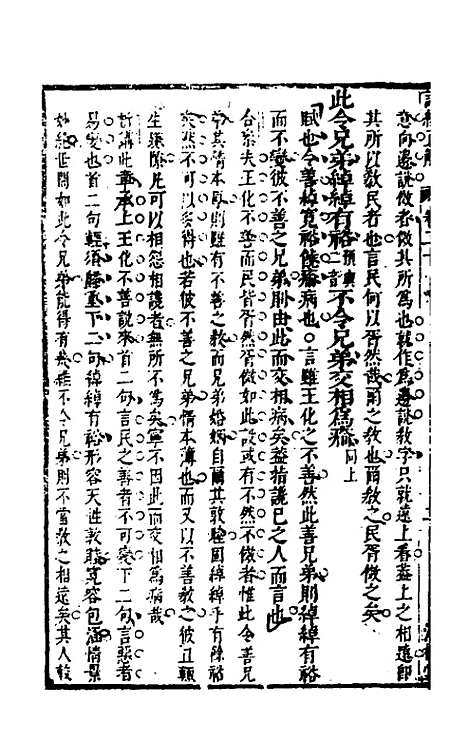 意向邊說傚者傚其所爲也就作爲邊說教字只就遠上看蓋上之相遠卽
其所以教民者也言民何以胥然哉爾之教也爾教之民胥傚之矣
此令兄弟綽綽有裕不令兄弟交相爲瘉同上
賦也令善綽寬裕饒瘉病也○言雖王化之不善然此善兄弟則綽綽有裕
而不變彼不善之兄弟則由此而交相病矣蓋指讒己之人而言也
合參夫王化不善而民皆胥然胥傚如此設或有不然不傚者惟此令善兄
弟其情本厚則雖有不善之教而兄弟婚姻自爾其敦睦固綽綽乎有餘裕
矣然不可以多得也若彼不善之兄弟情本薄也而又以不善教之彼且輒
生嫌隙凡可以相怨相讒者無所不爲矣寧不因此而交相爲病哉
析講此章承上王化不善說來首二句言民之善者不可變下二句言惡者
易變也首二句輕須勝至下二句綽綽有裕形容天性敦睦寬容包涵情景
妙絕世間如此令兄弟能得有幾雖不令兄弟則不當教之相遠矣其人殺